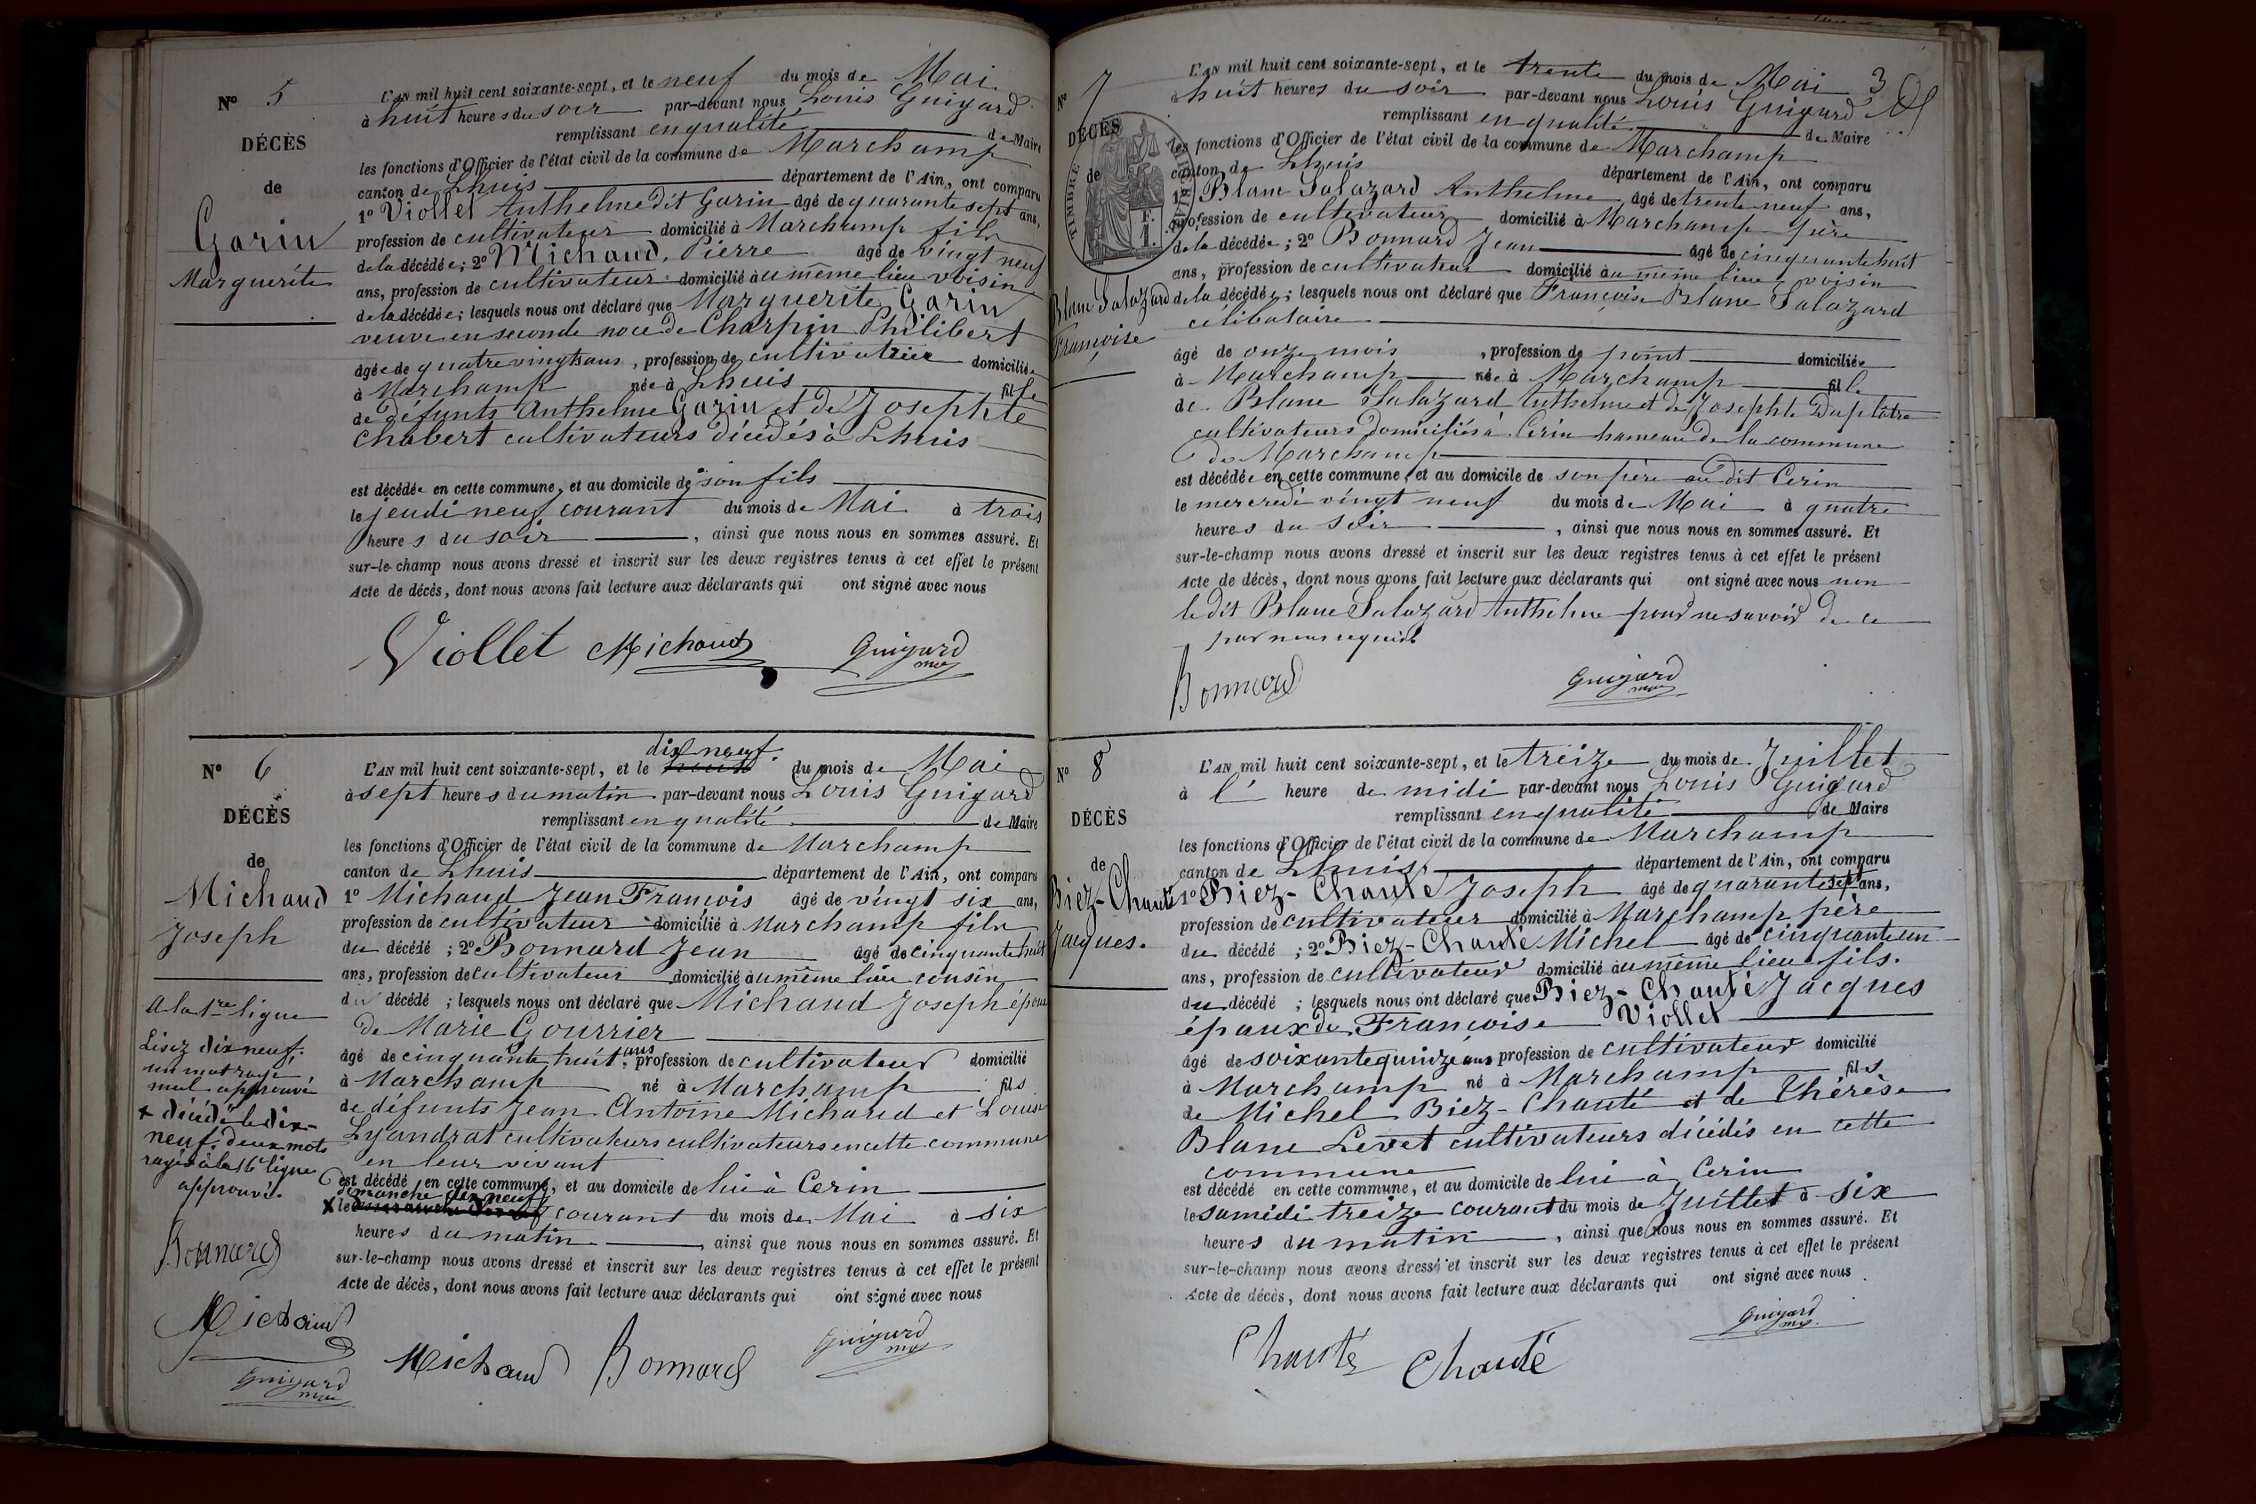 N° 5
DÉCÈS
de
Garin
Marguerite
L'AN mil huit cent soixante-sept, et le neuf du mois de Mai
à huit heures du soir par-devant nous Louis Guigard
remplissant en qualité de Maire
les fonctions d'Officier de l'état civil de la commune de Marchamp
canton de Lhuis département de l'Ain, ont comparu
1° Viollet Anthelme dit Garin âgé de quarante sept ans,
profession de cultivateur domicilié à Marchamp fils
de la décédée; 2° Michaud, Pierre âgé de vingt neuf
ans, profession de cultivateur domicilié au même lieu voisin
de la décédée; lesquels nous ont déclaré que Marguerite Garin
veuve en seconde noce de Charpin Philibert
âgée de quatre vingts ans, profession de cultivatrice domiciliée
à Marchamp née à Lhuis fille
de défunts Anthelme Garin et de Josephte
Chabert cultivateurs décédés à Lhuis
est décédée en cette commune, et au domicile de son fils
le jeudi neuf courant du mois de Mai à trois
heures du soir, ainsi que nous nous en sommes assuré. Et
sur-le-champ nous avons dressé et inscrit sur les deux registres tenus à cet effet le présent
Acte de décès, dont nous avons fait lecture aux déclarants qui ont signé avec nous
Viollet Michaud Guigard
N° 6
DÉCÈS
de
Michaud
Joseph
A la 1re ligne
Lisez dix neuf.
un mot rayé
nul approuvé
+ décédé le dix-
neuf. deux mots
rayés à la 16e ligne
approuvé.
Bonnard
Michaud
Guigard
dix neuf
L'AN mil huit cent soixante-sept, et le du mois de Mai
à sept heures du matin par-devant nous Louis Guigard
remplissant en qualité de Maire
les fonctions d'Officier de l'état civil de la commune de Marchamp
canton de Lhuis département de l'Ain, ont comparu
1° Michaud Jean François âgé de vingt six ans,
profession de cultivateur domicilié à Marchamp fils
du décédé; 2° Bonnard Jean âgé de cinquante huit
ans, profession de cultivateur domicilié au même lieu cousin
du décédé; lesquels nous ont déclaré que Michaud Joseph époux
de Marie Gourrier
âgé de cinquante huit ans profession de cultivateur domicilié
à Marchamp né à Marchamp fils
de défunts Jean Antoine Michaud et Louise
Lyandrat cultivateurs cultivateurs en cette commune
en leur vivant
est décédé en cette commune, et au domicile de lui à Cerin
dimanche dix neuf
x le courant du mois de Mai à six
heures du matin, ainsi que nous nous en sommes assuré. Et
sur-le-champ nous avons dressé et inscrit sur les deux registres tenus à cet effet le présent
Acte de décès, dont nous avons fait lecture aux déclarants qui ont signé avec nous
Michaud Bonnard Guigard
3
N° 7
DÉCÈS
de
TIMBRE IMPÉRIAL
F.
1.
Blanc Salazard
Françoise
L'AN mil huit cent soixante-sept, et le trente du mois de Mai
à huit heures du soir par-devant nous Louis Guigard
remplissant en qualité de Maire
les fonctions d'Officier de l'état civil de la commune de Marchamp
canton de Lhuis département de l'Ain, ont comparu
1° Blanc Salazard Anthelme âgé de trente neuf ans,
profession de cultivateur domicilié à Marchamp père
de la décédée; 2° Bonnard Jean âgé de cinquante huit
ans, profession de cultivateur domicilié au même lieu voisin
de la décédée; lesquels nous ont déclaré que Françoise Blanc Salazard
célibataire
âgé de onze mois, profession de point domiciliée
à Marchamp née à Marchamp fille
de Blanc Salazard Anthelme et de Josephte Duplatre
cultivateurs domiciliés à Cerin hameau de la commune
de Marchamp
est décédée en cette commune, et au domicile de son père au dit Cerin
le mercredi vingt neuf du mois de Mai à quatre
heures du soir, ainsi que nous nous en sommes assuré. Et
sur-le-champ nous avons dressé et inscrit sur les deux registres tenus à cet effet le présent
Acte de décès, dont nous avons fait lecture aux déclarants qui ont signé avec nous non
le dit Blanc Salazard Anthelme pour ne savoir de ce
par nous requis
Bonnard Guigard
N° 8
DÉCÈS
de
Biez-Chanté
Jacques.
L'AN mil huit cent soixante-sept, et le treize du mois de Juillet
à l' heure de midi par-devant nous Louis Guigard
remplissant en qualité de Maire
les fonctions d'Officier de l'état civil de la commune de Marchamp
canton de Lhuis département de l'Ain, ont comparu
1° Biez-Chanté Joseph âgé de quarante sept ans,
profession de cultivateur domicilié à Marchamp père
du décédé; 2° Biez-Chanté Michel âgé de cinquante un
ans, profession de cultivateur domicilié au même lieu fils.
du décédé; lesquels nous ont déclaré que Biez-Chanté Jacques
époux de Françoise Viollet
âgé de soixante quinze ans profession de cultivateur domicilié
à Marchamp né à Marchamp fils
de Michel Biez-Chanté et de Thérèse
Blanc Levet cultivateurs décédés en cette
commune
est décédé en cette commune, et au domicile de lui à Cerin
le samedi treize courant du mois de Juillet à six
heures du matin, ainsi que nous nous en sommes assuré. Et
sur-le-champ nous avons dressé et inscrit sur les deux registres tenus à cet effet le présent
Acte de décès, dont nous avons fait lecture aux déclarants qui ont signé avec nous
Chanté Chanté Guigard